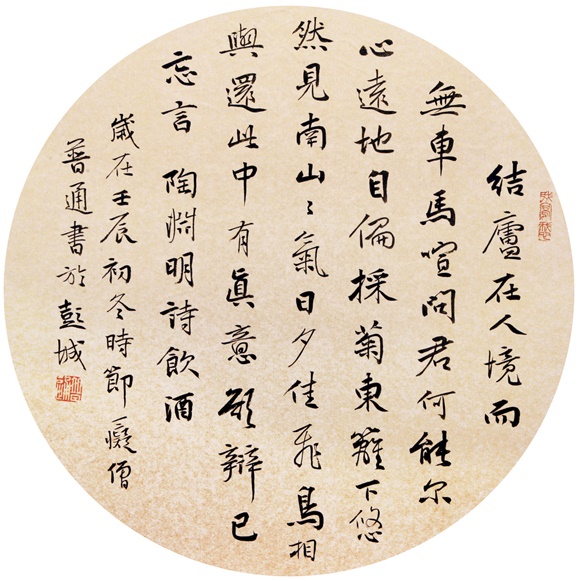 結廬在人境而
無車馬喧問君何能尔
心遠地自偏採菊東籬下悠
然見南山〻氣日夕佳飛鳥相
與還此中有眞意欲辯已
忘言 陶淵明詩飲酒
歲在壬辰初冬時節一癡僧
普通書於彭城